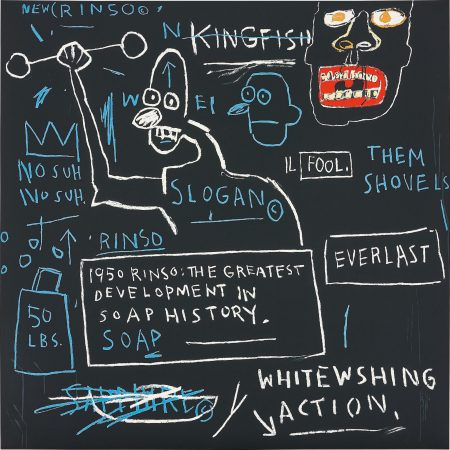 NEW (RINSO©.
N KINGFISH
W EI
NO SUH.
NO SUH.
SLOGAN ©
IL FOOL.
THEM
SHOVELS
RINSO
EVERLAST
1950 RINSO: THE GREATEST
DEVELOPMENT IN
SOAP HISTORY.
SOAP
50
LBS.
SAPPHIRE ©
WHITEWSHING
ACTION.